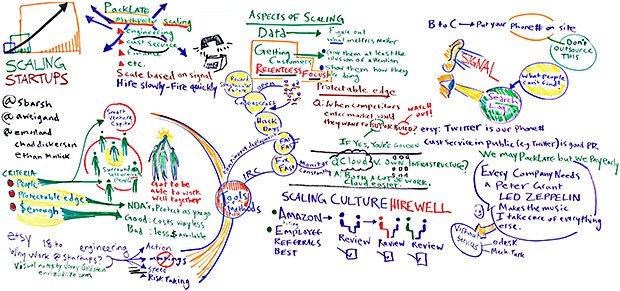 SCALING
STARTUPS
@sbarsh
@avsigand
@emonland
chad dickerson
ethan
PackLate
Multivector Scaling
engineering
cust service
Finance
etc.
Scale based on signal
Hire slowly-Fire quickly
ASPECTS OF SCALING
Data
Figure out
what metrics matter
Getting
Customers
RELENTLESS FOCUS
Give them at least the
illusion of attention
Show them how they
are doing
Protectable edge
Q: When competitors
enter market would
they want to BUY or BUILD?
WATCH
OUT!
IF YES, You're GOLDEN
Q: Cloud vs. OWN INFRASTRUCTURE?
A: Both a lot of work.
Cloud easier.
B to C
Put your phone # on site
Don't
OUTSOURCE
THIS
SIGNAL
what people
can't find?
Search
Log
etsy: Twitter is our Phone#
cust service in public (e.g. Twitter) is good PR
We may PackLate but we Pay early
Every Company Needs
a Peter Grant
LED ZEPPELIN
Makes the music
I take care of everything
else.
Virtual
Services
odesk
Mech. Turk
Smart
Venture
Capital
Surround
People
CRITERIA
People
Protectable edge
$enough
Got to be
able to work
well together
NDA's: Protect as you go
Good: Costs way less
Bad: less $ available
open
Hack
Days
Fail
Fast
Fix
Fast
Monitor
Constantly
IRC
Tools
methods
SCALING CULTURE
HIRE WELL
Amazon
hiring
EMPLOYEE
REFERRALS
BEST
Review
Review
Review
etsy
18 to
engineering
Why work @ Startups?
Action
meetings
speed
Risk Taking